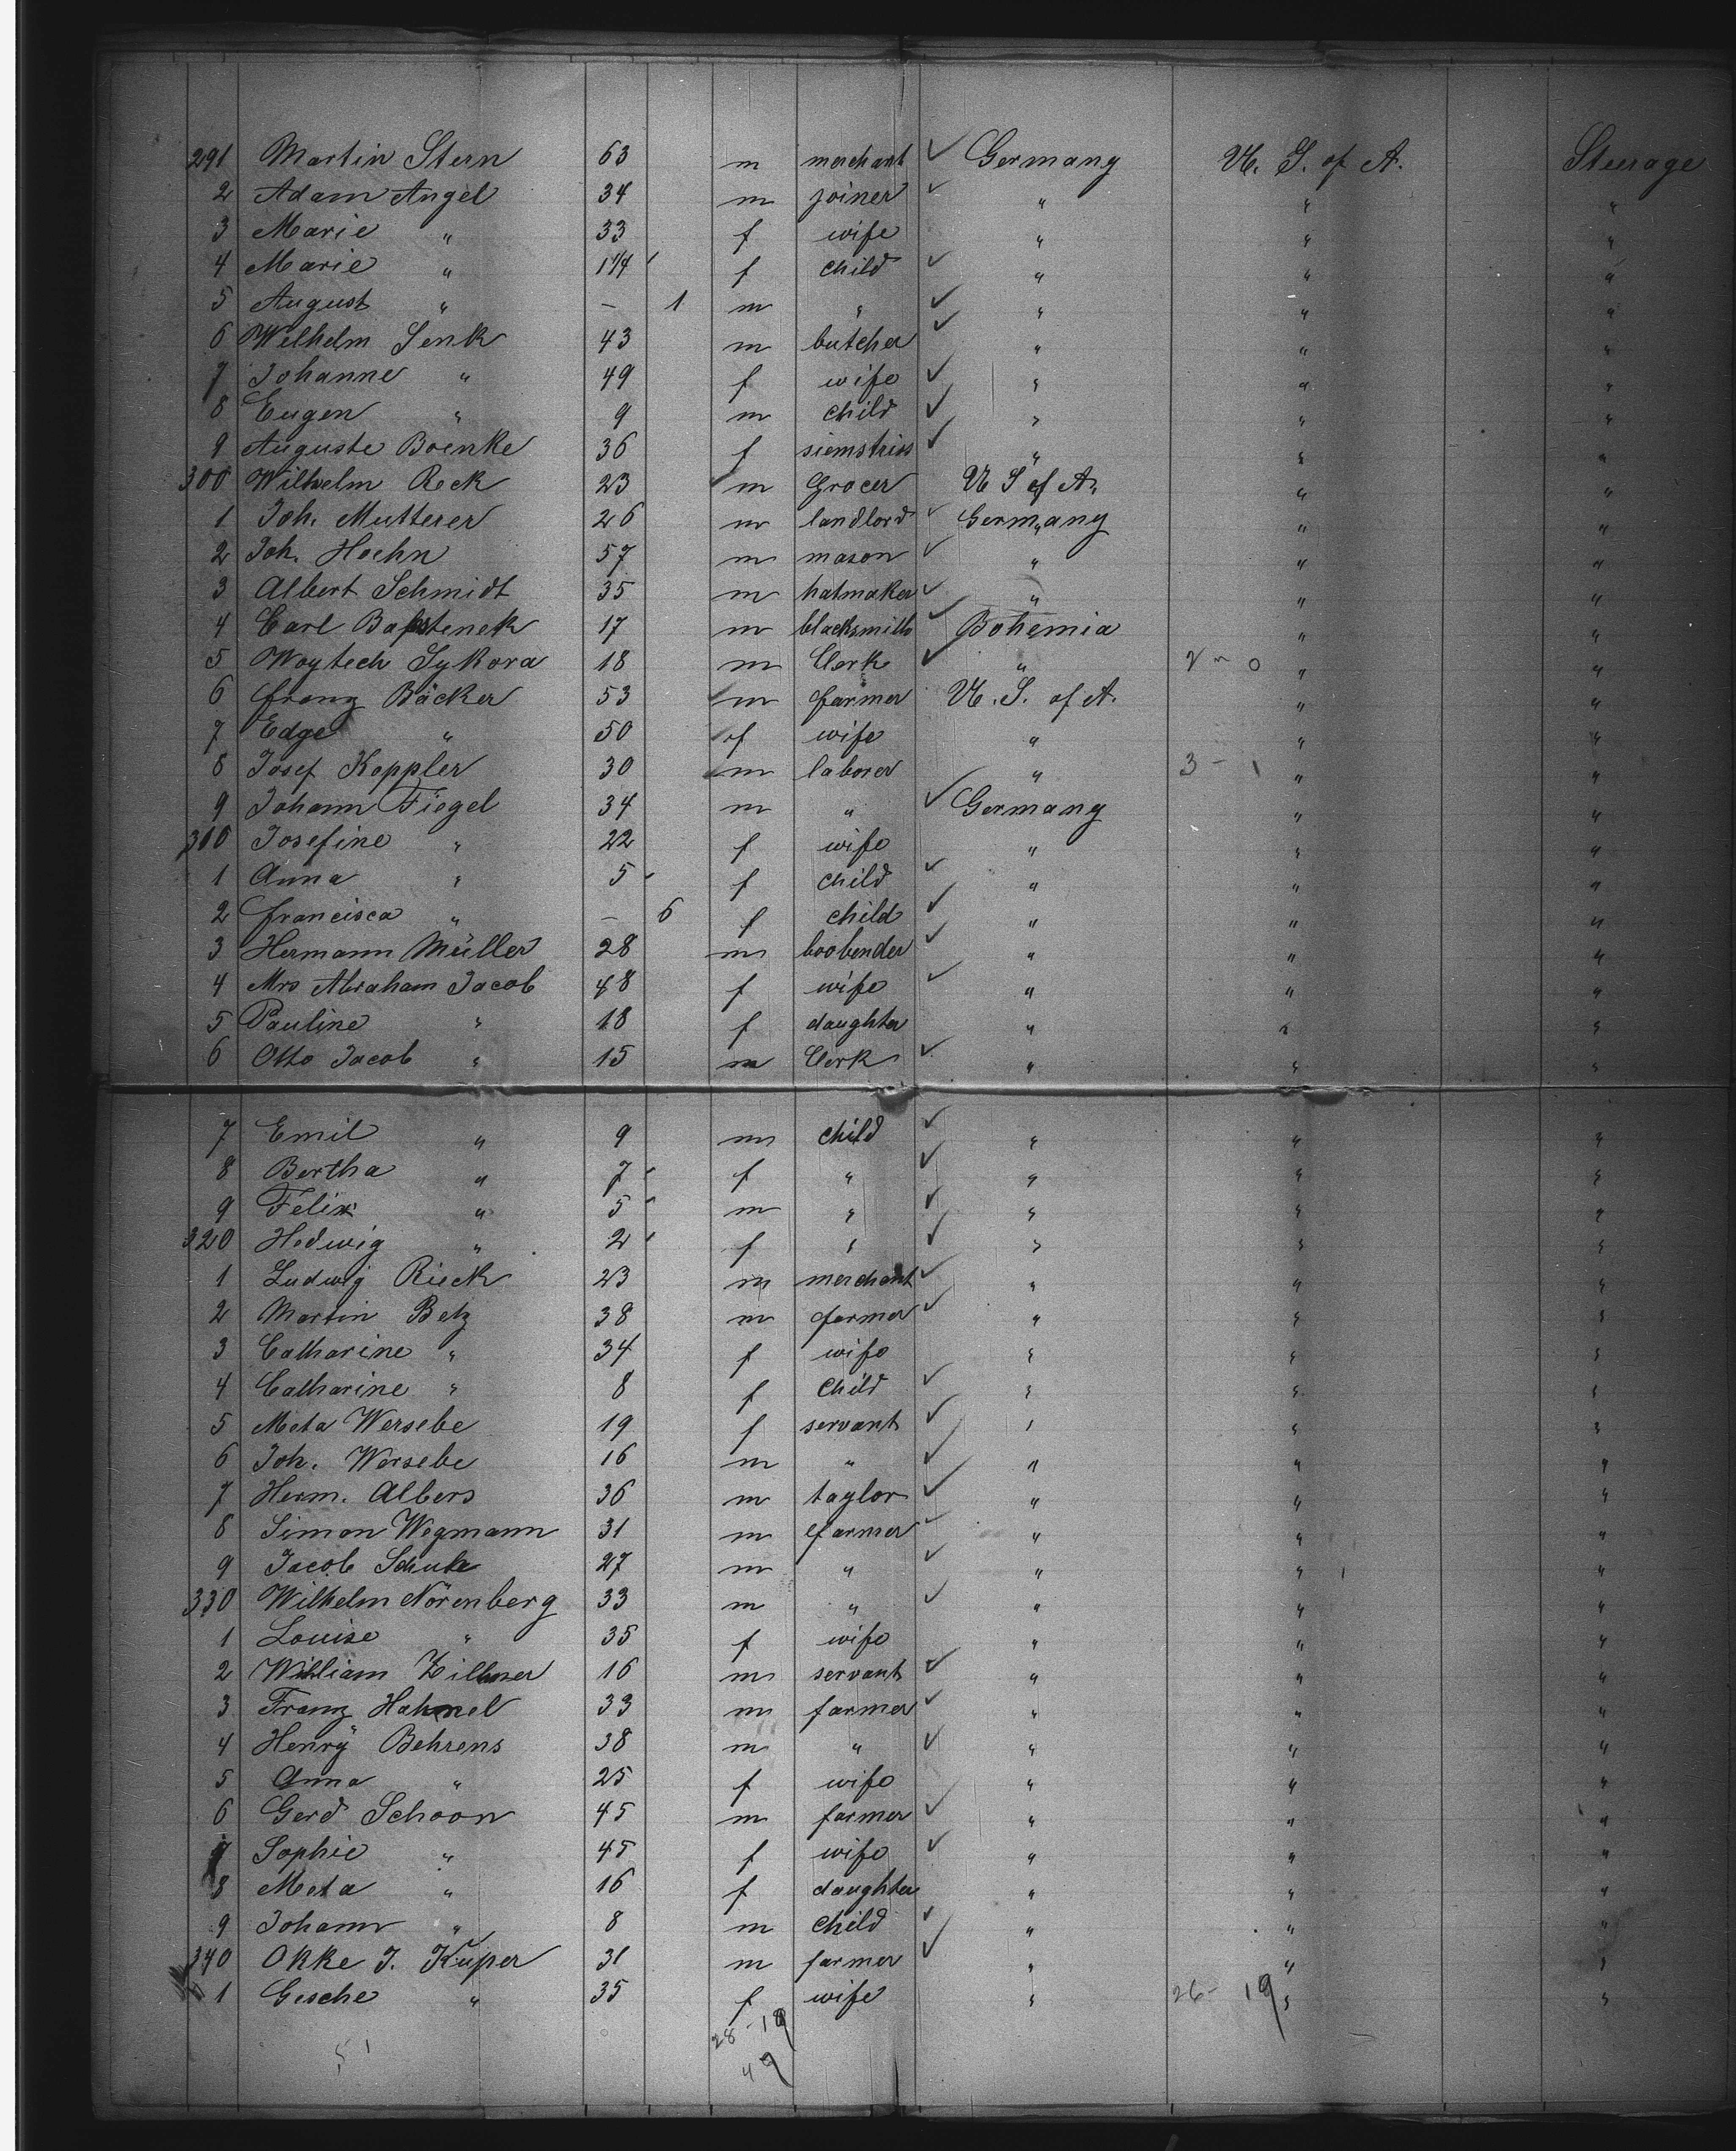 291 Martin Stern 63 m merchant ✓ Germany U. S. of A. Steerage
2 Adam Angel 34 m joiner ✓ " " "
3 Marie " 33 f wife " " "
4 Marie " 1 1/4 f child ✓ " " "
5 August " – 1 m " ✓ " " "
6 Wilhelm Senk 43 m butcher ✓ " " "
7 Johanne " 49 f wife ✓ " " "
8 Eugen " 9 m child ✓ " " "
9 Auguste Boenke 36 f siemstriss ✓ " " "
300 Wilhelm Reck 23 m Grocer U S of A. " "
1 Joh. Mutterer 26 m landlord ✓ Germany " "
2 Joh. Hoehn 57 m mason ✓ " " "
3 Albert Schmidt 35 m hatmaker ✓ " " "
4 Carl 17 m blacksmith ✓ Bohemia " "
5 Woytech Sykora 18 m Clerk ✓ " 2 - 0 " "
6 Franz Bäcker 53 m farmer U. S. of A. " "
7 Edge " 50 f wife " " "
8 Josef Koppler 30 m laborer " 3 - 1 " "
9 Johann Fiegel 34 m " ✓ Germany " "
310 Josefine " 22 f wife " " "
1 Anna " 5 f child ✓ " " "
2 Francisca " – 6 f child ✓ " " "
3 Hermann Müller 28 m boobender ✓ " " "
4 Mrs Abraham Jacob 48 f wife ✓ " " "
5 Pauline " 18 f daughter " " "
6 Otto Jacob " 15 m Clerk ✓ " " "
7 Emil " 9 m child ✓ " " "
8 Bertha " 7 f " ✓ " " "
9 Felix " 5 m " ✓ " " "
320 Hedwig " 2 f " ✓ " " "
1 Ludwig Rieck 23 m merchant ✓ " " "
2 Martin Betz 38 m farmer ✓ " " "
3 Catharine " 34 f wife " " "
4 Catharine " 8 f Child ✓ " " "
5 Meta Wersebe 19 f servant ✓ " " "
6 Joh. Wersebe 16 m " ✓ " " "
7 Herm. Albers 36 m taylor ✓ " " "
8 Simon Wegmann 31 m farmer ✓ " " "
9 Jacob 27 m " ✓ " " "
330 Wilhelm Nörenberg 33 m " ✓ " " "
1 Louise " 35 f wife " " "
2 William 16 m servant ✓ " " "
3 Franz Hahmel 33 m farmer ✓ " " "
4 Henry Behrens 38 m " ✓ " " "
5 Anna " 25 f wife " " "
6 Gerd Schoon 45 m farmer ✓ " " "
7 Sophie " 45 f wife ✓ " " "
8 Meta " 16 f daughter " " "
9 Johann " 8 m child ✓ " " "
340 Okke J. Küper 31 m farmer ✓ " " "
1 Gesche " 35 f wife " 26 - 19 " "
28 - 19
51 49